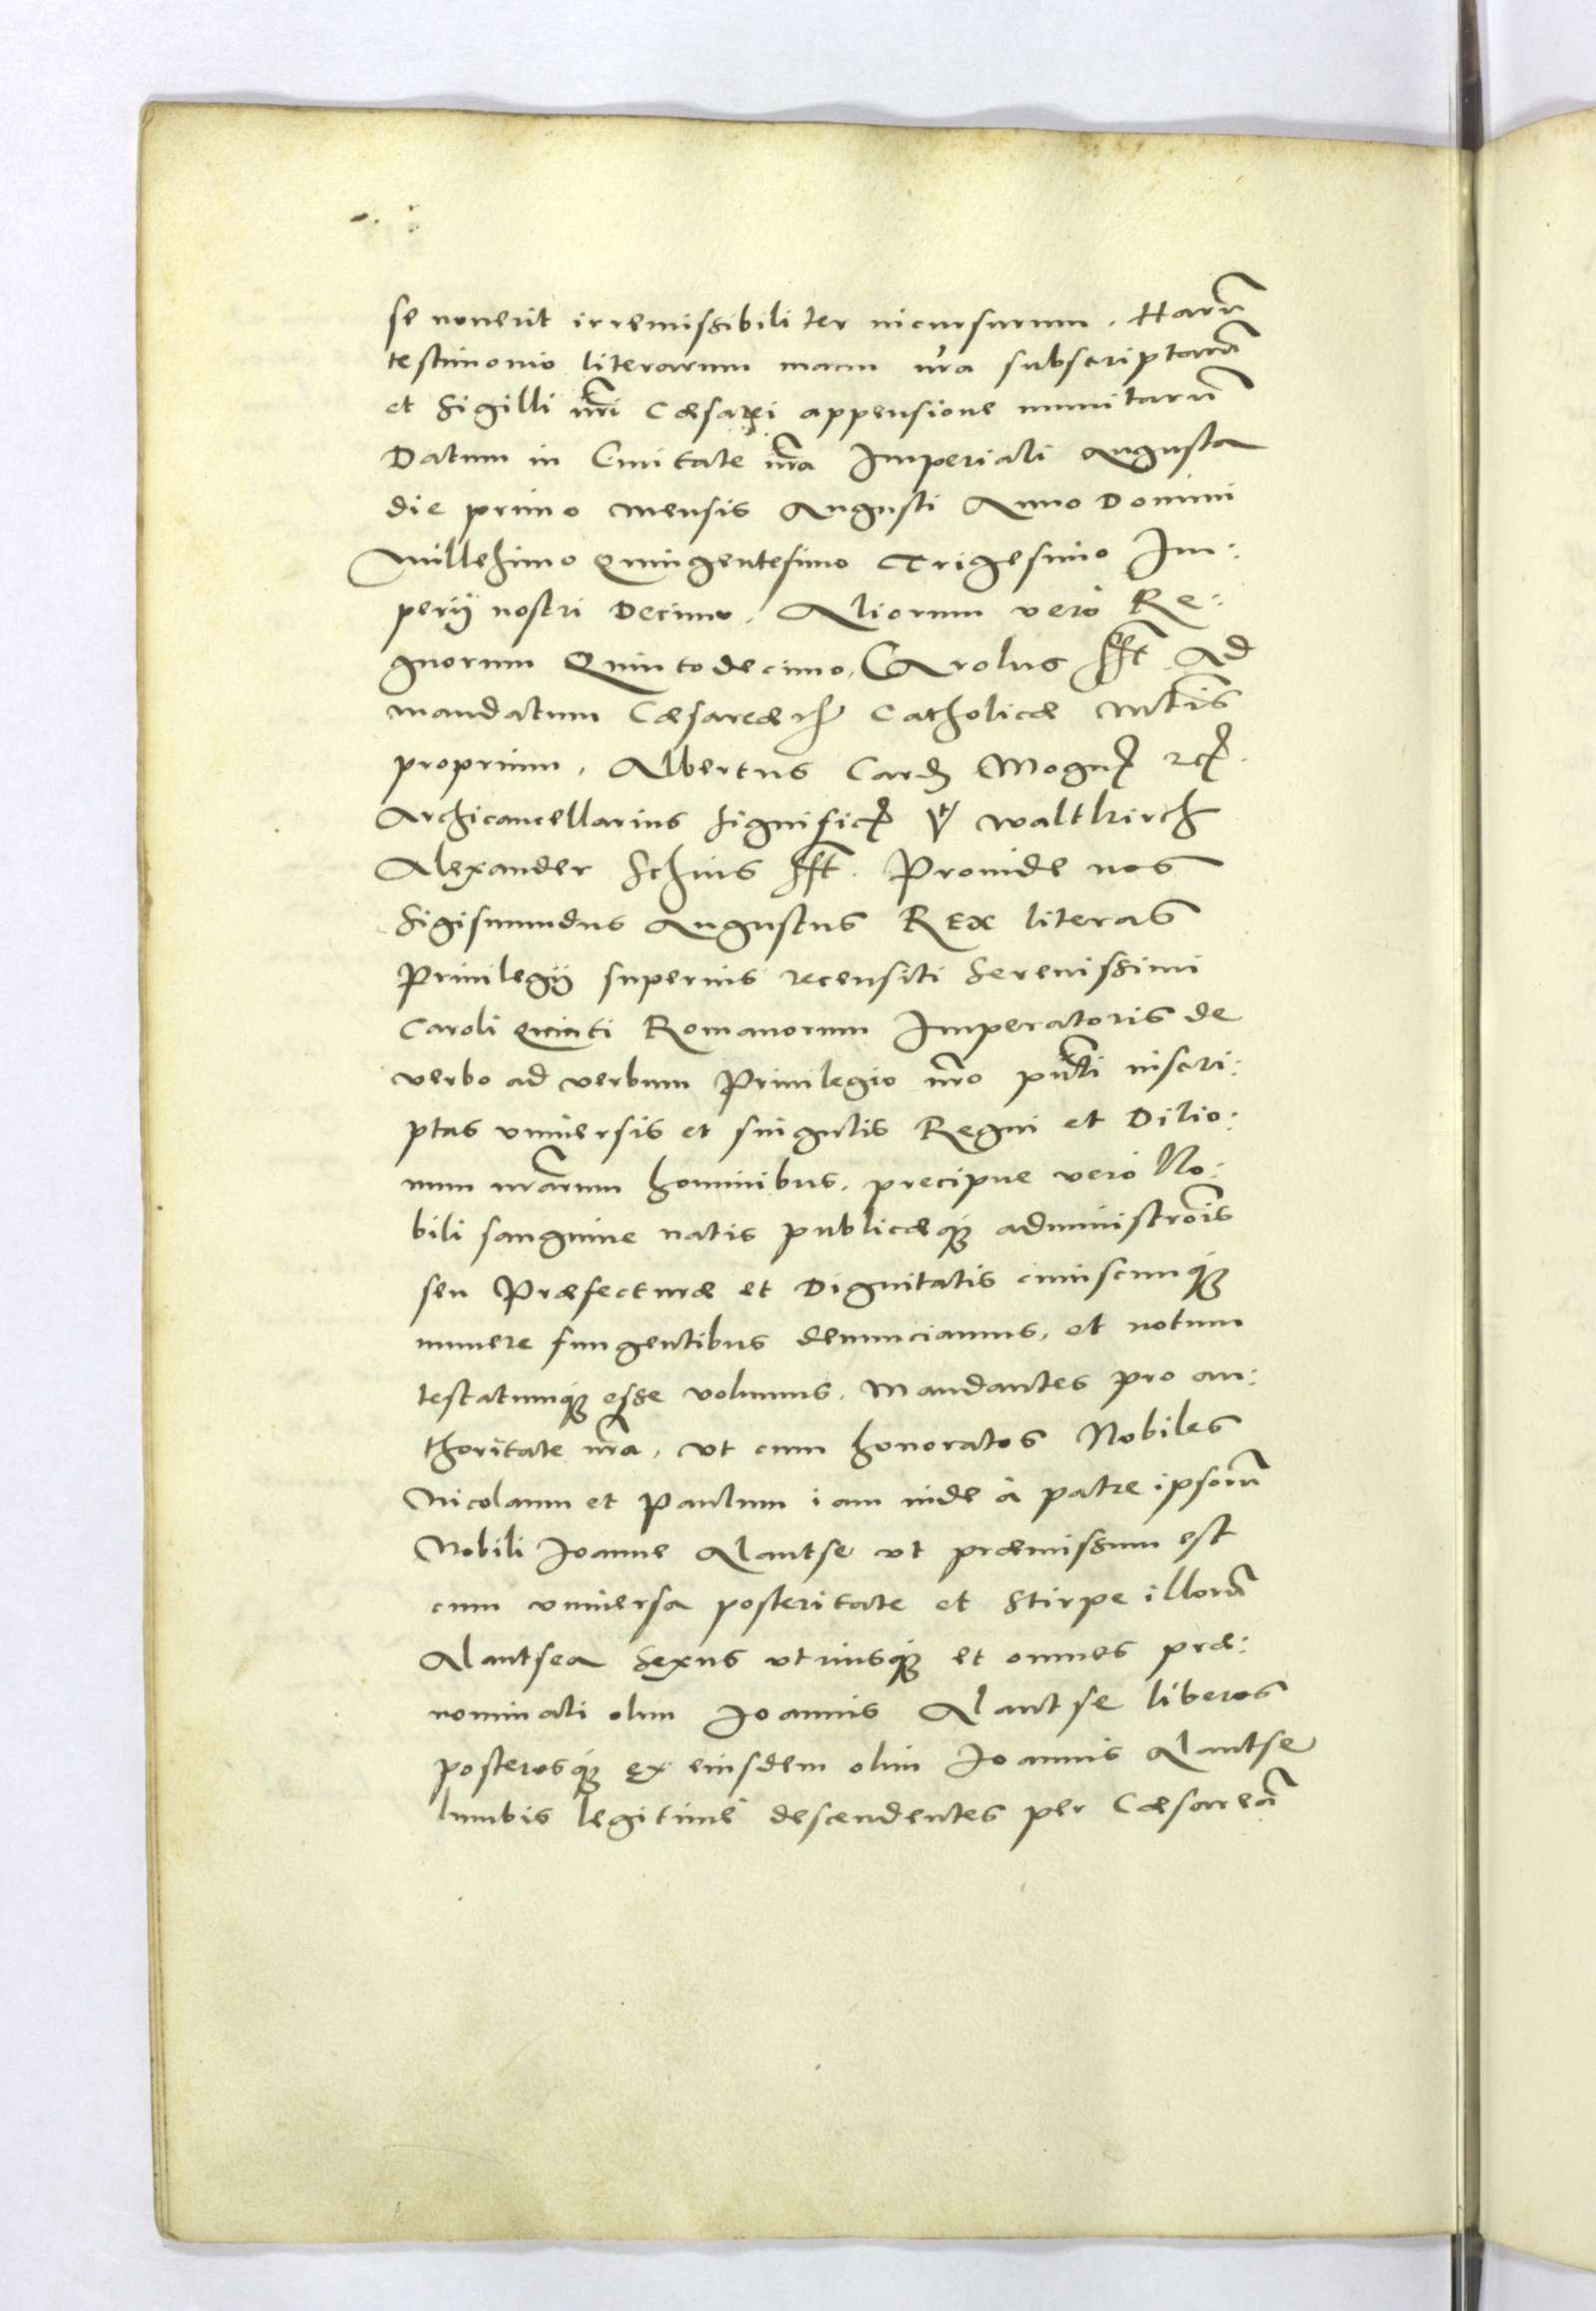 se noverit irremissibiliter incursurum. Harũ
testimonio literarum manu nr̃a subscriptarũ
et Sigilli nr̃i Cæsarei appensione munitarũ
Datum in Civitate nr̃a Imperiali Augusta
die primo mensis Augusti Anno Domini
Millesimo Quingentesimo Trigesimo Im:
perij nostri Decimo. Aliorum verò Re:
gnorum Quintodecimo. CArolus sst̃. Ad
mandatum Cæsareæ et Catholicæ Mt̃is
proprium. Albertus Card Mogun etc.
Archicancellarius Signific Vt Waltkirch
Alexander Schuis sst̃. Proinde nos
Sigismundus Augustus REx literas
Privilegij superius recensiti Serenissimi
Caroli Quinti Romanorum Imperatoris de
verbo ad verbum Privilegio nr̃o pñti inscri:
ptas universis et singulis Regni et Ditio:
num nr̃arum hominibus. precipue verò No:
bili sanguine natis publicæq́ue administrõis
seu Præfecturæ et Dignitatis cuiuscunq́ue
munere fungentibus denunciamus, et notum
testatumq́ue esse volumus. Mandantes pro au:
thoritate nr̃a, ut cum honoratos Nobiles
Nicolaum et Paulum iam inde à patre ipsorũ
Nobili Joanne Alantse ut præmissum est
cum universa posteritate et Stirpe illorũ
Alantsea Sexus utriusq́ue et omnes præ:
nominati olim Joannis Alantse liberos
posterosq́ue ex eiusdem olim Joannis Alantse
lumbis legitimè descendentes per Cæsareã